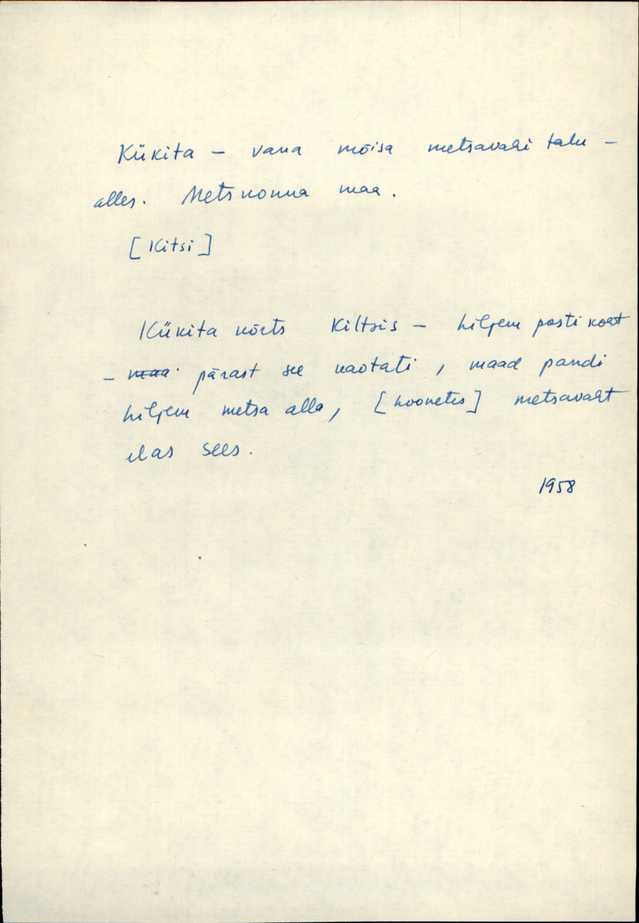 Kükita – vana mõisa metsavahi talu –
alles. Metskonna maa.
[Kitsi]
Kükita kõrts Kiltsis – hiljem postikoht
– maa pärast see kaotati, maad pandi
hiljem metsa alla, [hoonetes] metsavaht
elas sees.
1958